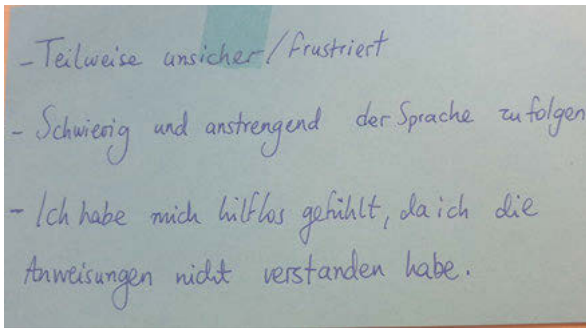 - Teilweise unsicher/frustriert
- Schwierig und anstrengend der Sprache zu folgen
- Ich habe mich hilflos gefühlt, da ich die
Anweisungen nicht verstanden habe.